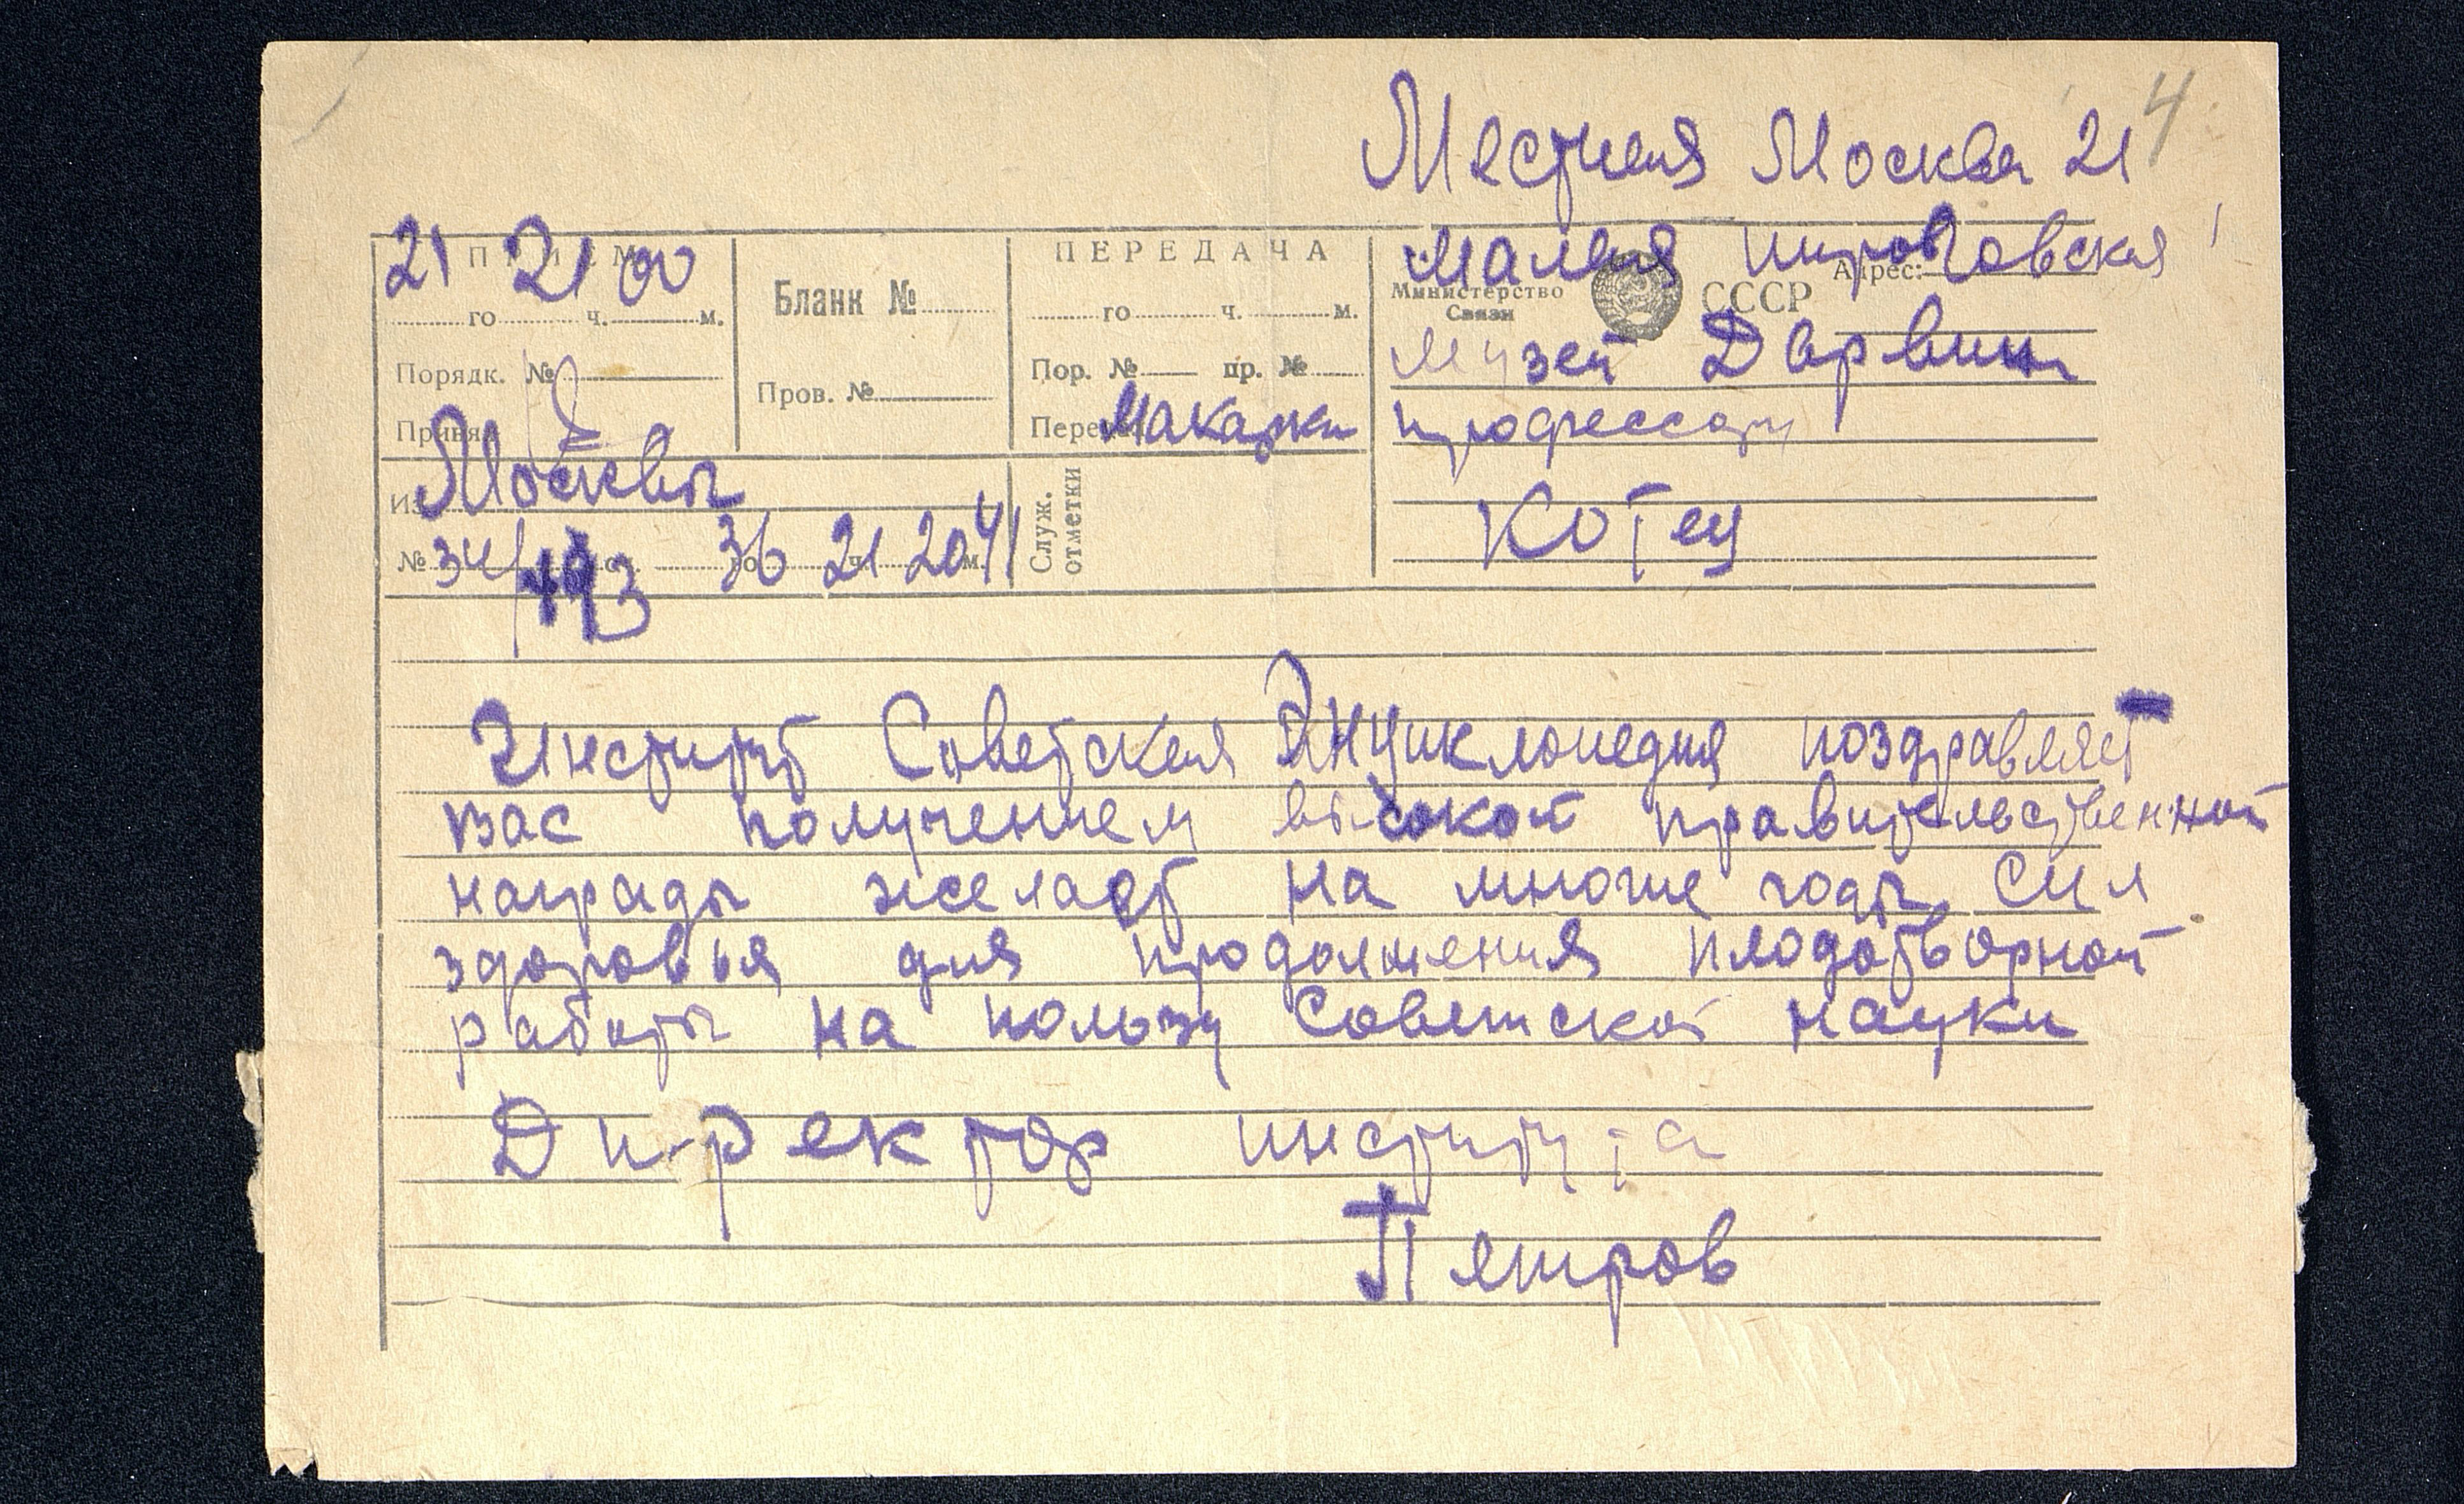 4
Местная Москва 21
21 21 00
ПРИЕМ
го ч. м.
Порядк. №
Принял
Бланк №
Пров. №
ПЕРЕДАЧА
го ч. м.
Пор. № пр. №
Макарки
Малая Пироговская 1
Министерство
Связи
СССР
Адрес:
музей Дарвин
профессору
Котец
Москвы
№ 34/ 36 21 20 41
Служ.
отметки
Институт Советская Энциклопедия поздравляет
вас получением высокой правительственной
награды желает на многие годы сил
здоровья для продолжения плодотворной
работы на пользу Советской науки
Директор института
Петров